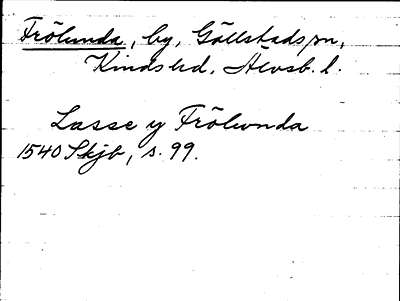 Frölunda, by, Gällstads sn,
Kinds hd, Älvsb. l.
Lasse y Frölwnda
1540 Skjb, s. 99.